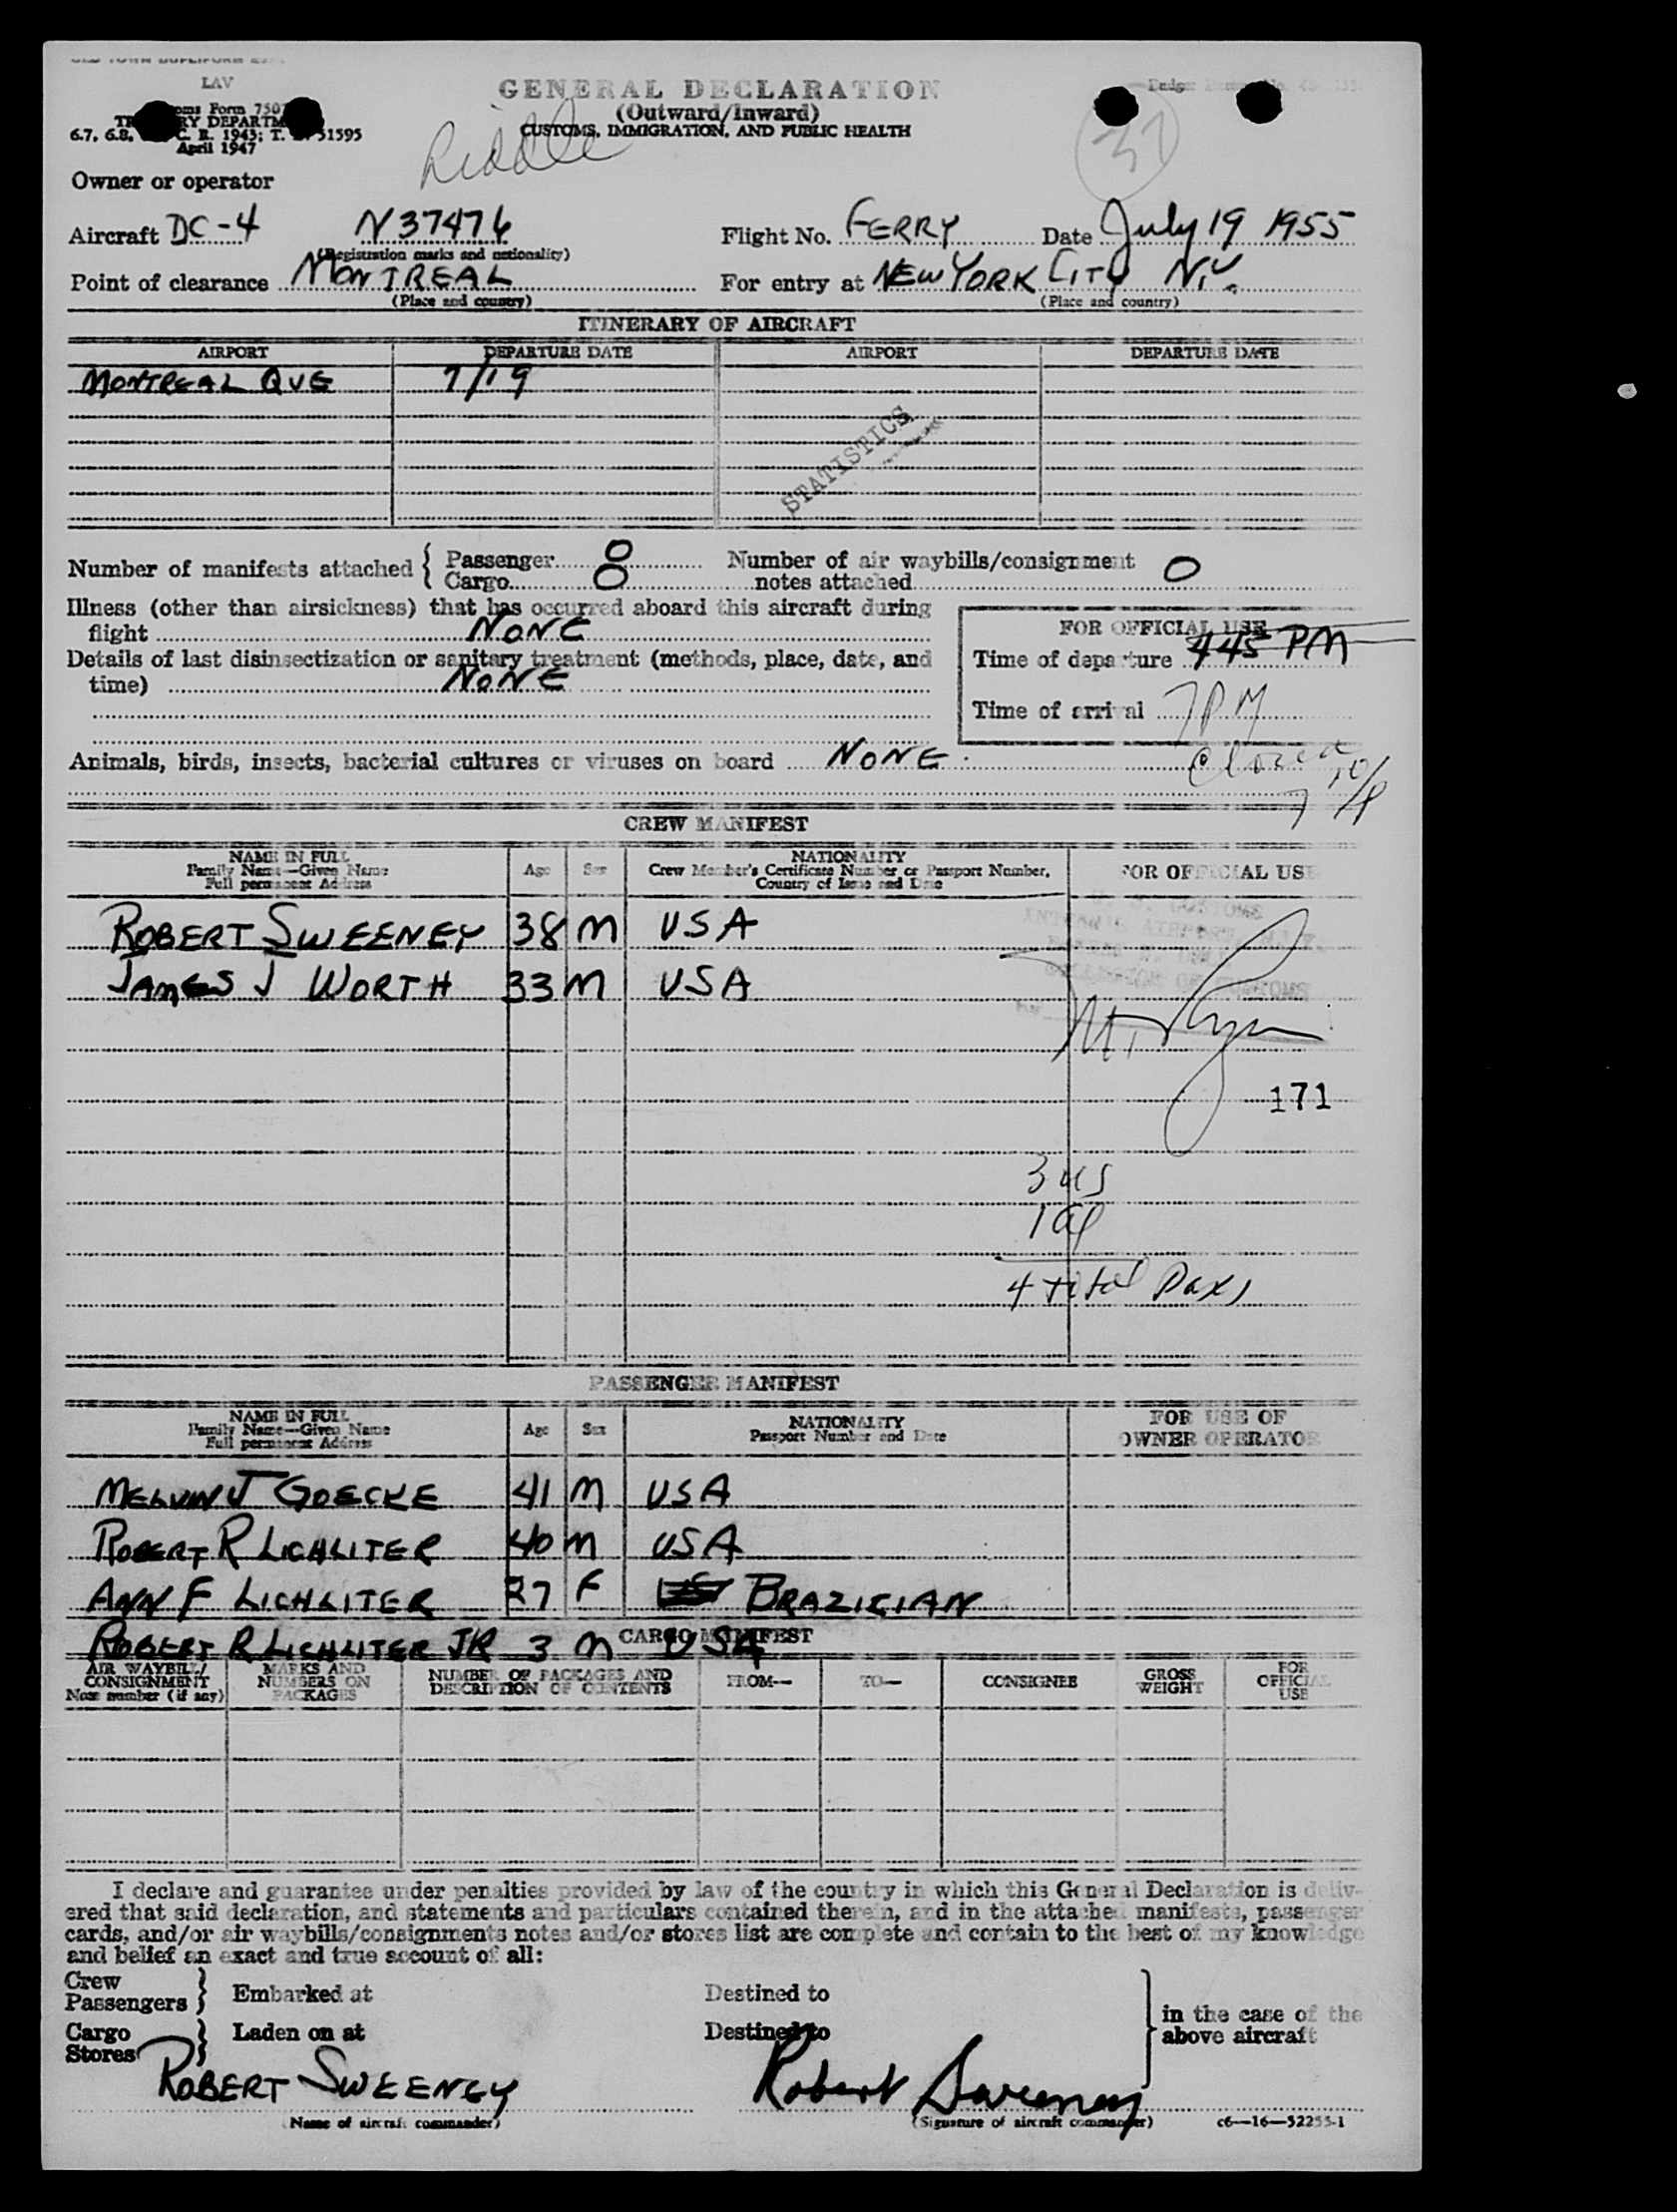 LAV
GENERAL DECLARATION
(Outward/Inward)
CUSTOMS, IMMIGRATION, AND PUBLIC HEALTH
Form 7507
DEPARTM
6.7, 6.8, C. R. 1943; T. 51595
April 1947
Riddle
37
Owner or operator
Aircraft DC-4 N37476 Flight No. FERRY Date July 19 1955
(Registration marks and nationality)
Point of clearance MONTREAL For entry at NEW YORK CITY N.Y.
(Place and country) (Place and country)
ITINERARY OF AIRCRAFT
AIRPORT DEPARTURE DATE AIRPORT DEPARTURE DATE
MONTREAL QUE 7/19
STATISTICS
Number of manifests attached { Passenger 0 Number of air waybills/consignment
Cargo 0 notes attached 0
Illness (other than airsickness) that has occurred aboard this aircraft during
flight NONE
FOR OFFICIAL USE
Details of last disinsectization or sanitary treatment (methods, place, date, and
time) NONE
Time of departure 445 PM
Time of arrival 7PM
Animals, birds, insects, bacterial cultures or viruses on board NONE
CREW MANIFEST
NAME IN FULL Age Sex NATIONALITY FOR OFFICIAL USE
Family Name—Given Name Crew Member's Certificate Number or Passport Number,
Full permanent Address Country of Issue and Date
ROBERT SWEENEY 38 M USA
JAMES J WORTH 33 M USA
171
3 US
1 al
4 total Paxs
PASSENGER MANIFEST
NAME IN FULL Age Sex NATIONALITY FOR USE OF
Family Name—Given Name Passport Number and Date OWNER OPERATOR
Full permanent Address
MELVIN J GOECKE 41 M USA
ROBERT R LICHLITER 40 M USA
ANN F LICHLITER 27 F BRAZILIAN
ROBERT R LICHLITER JR 3 M USA
CARGO MANIFEST
AIR WAYBILL/ MARKS AND NUMBER OF PACKAGES AND FROM— TO— CONSIGNEE GROSS FOR
CONSIGNMENT NUMBERS ON DESCRIPTION OF CONTENTS WEIGHT OFFICIAL
Note number (if any) PACKAGES USE
I declare and guarantee under penalties provided by law of the country in which this General Declaration is deliv-
ered that said declaration, and statements and particulars contained therein, and in the attached manifests, passenger
cards, and/or air waybills/consignments notes and/or stores list are complete and contain to the best of my knowledge
and belief an exact and true account of all:
Crew
Passengers } Embarked at Destined to
in the case of the
Cargo } Laden on at Destined to above aircraft
Stores
ROBERT SWEENEY Robert Sweeney
(Name of aircraft commander) (Signature of aircraft commander) c6—16—52255-1